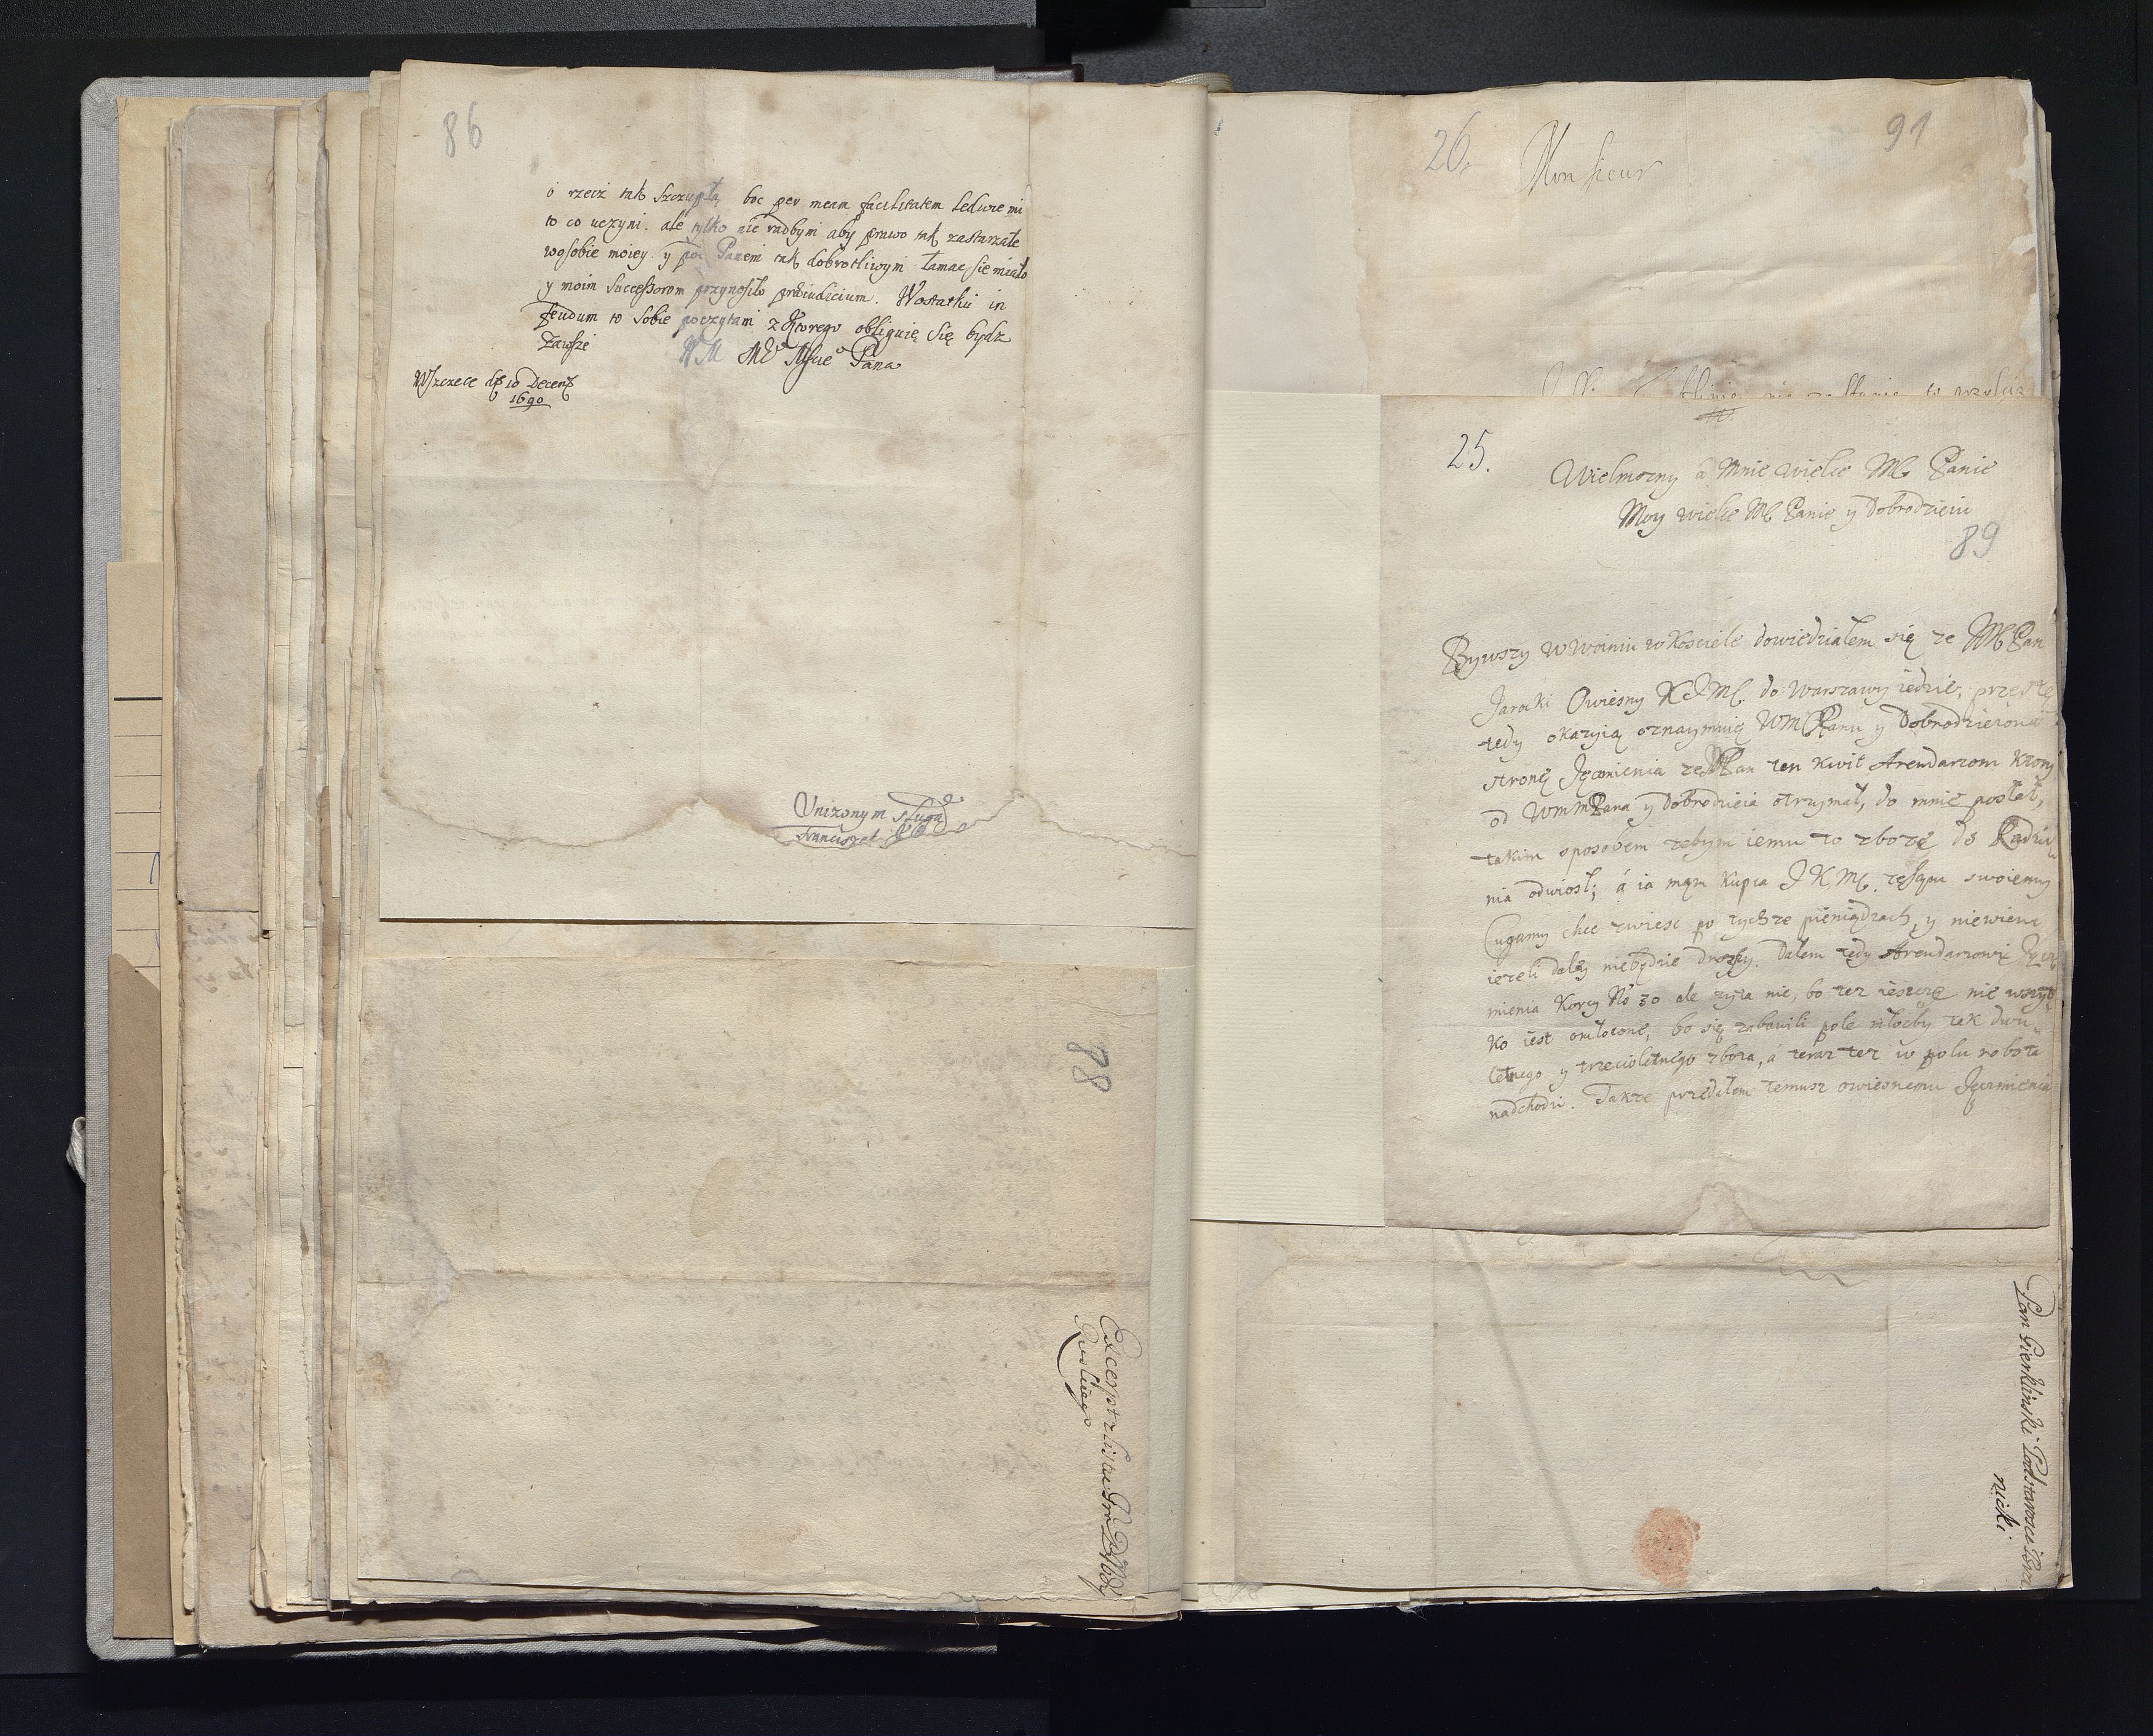 86
o rzecz tak szczupłą boc per meam facilitatem ledwie mi
to co uczyni. ale tylko nie radbym aby prawo tak zastarzałe
wosobie moiey y Panem tak dobrotliwym łamac się miało
y moim Successorom przynosiło praeiudicium. Wostatku in
feudum to sobie poczytam z ktorego obliguię się bydz
Zawsze
WM Pana
10 Decemb
1690
Unizonym sługą
88
Excerpt z listu
Ruskiego
26.
Monsieur
91
25.
Wielmozny a Mnie wielce Mć Panie
Moy wielce Mć Panie y Dobrodzieiu
89
Bywszy w Woiniu w Kosciele dowiedziałem się ze Pan
Jarocki Owiesny K J Mć. do Warszawy iedzie, przez tę
tedy okazyią oznaymuię WM Panu y Dobrodzieiowi
stronę Jęcmienia ze Pan ten kwit Arendarzom ktory
od WmmPana y Dobrodzieia otrzymał, do mnie posłał,
takim sposobem zebym iemu to zboze do Radzi
nia odwiosł; á ia mąm kupca J K Mć. swoiemy
Cugamy chce zwiesc po tychze pieniądzach, y niewiem
iezeli daley niebędzie drozszy. Dałem tedy Arendarzowi Jęcz
mienia Korcy No 30 ale zyta nie, bo tez ieszcze nie wszyt
ko iest omłocone, bo się zabawili pole młocby tak dwu
letnego y trzecioletnego zboza, á teraz tez w polu robota
nadchodzi. Takze przedałem temusz owiesnemu Jęcmienia
Pan Gierkliński Podstarosci Brze
nicki